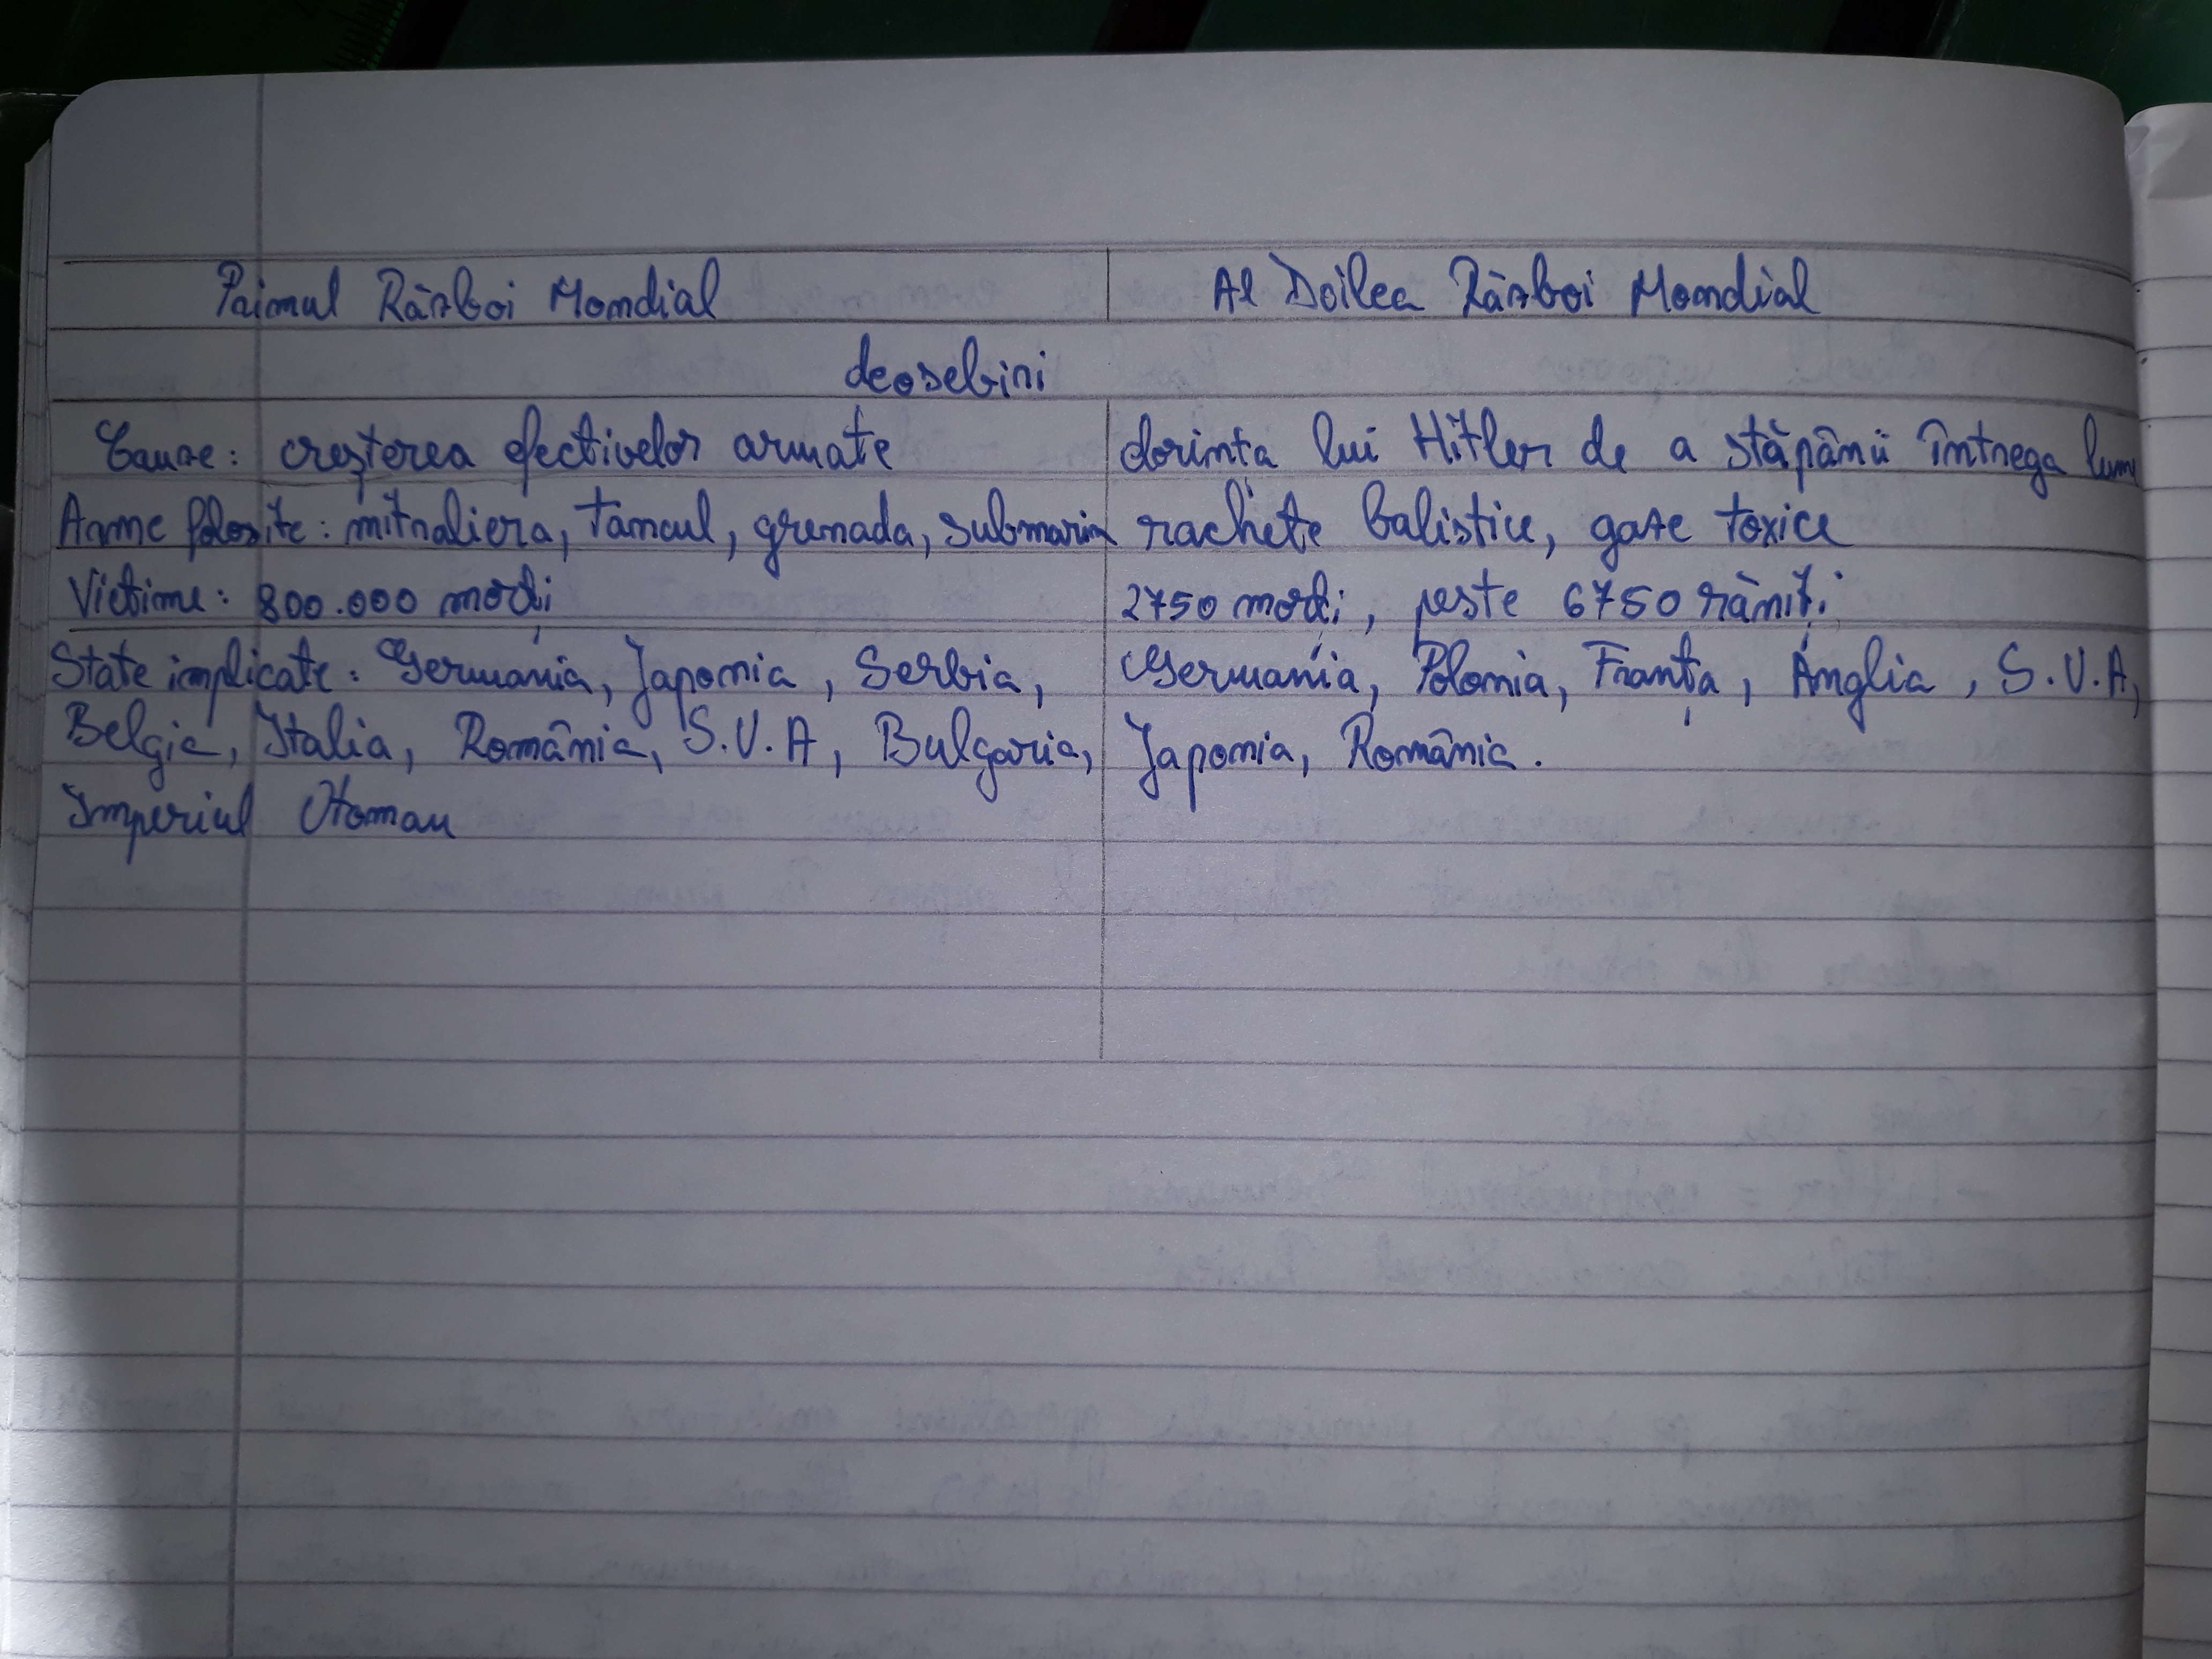 Primul Război Mondial Al Doilea Război Mondial
deosebiri
Cauze: creșterea efectivelor armate dorința lui Hitler de a stăpânii întrega lume
Arme folosite: mitraliera, tancul, grenada, submarin rachete balistice, gaze toxice
Victime: 800.000 morți 2750 morți, peste 6750 răniți
State implicate: Germania, Japonia, Serbia, Germania, Polonia, Franța, Anglia, S.U.A,
Belgia, Italia, România, S.U.A, Bulgaria, Japonia, România.
Imperiul Otoman